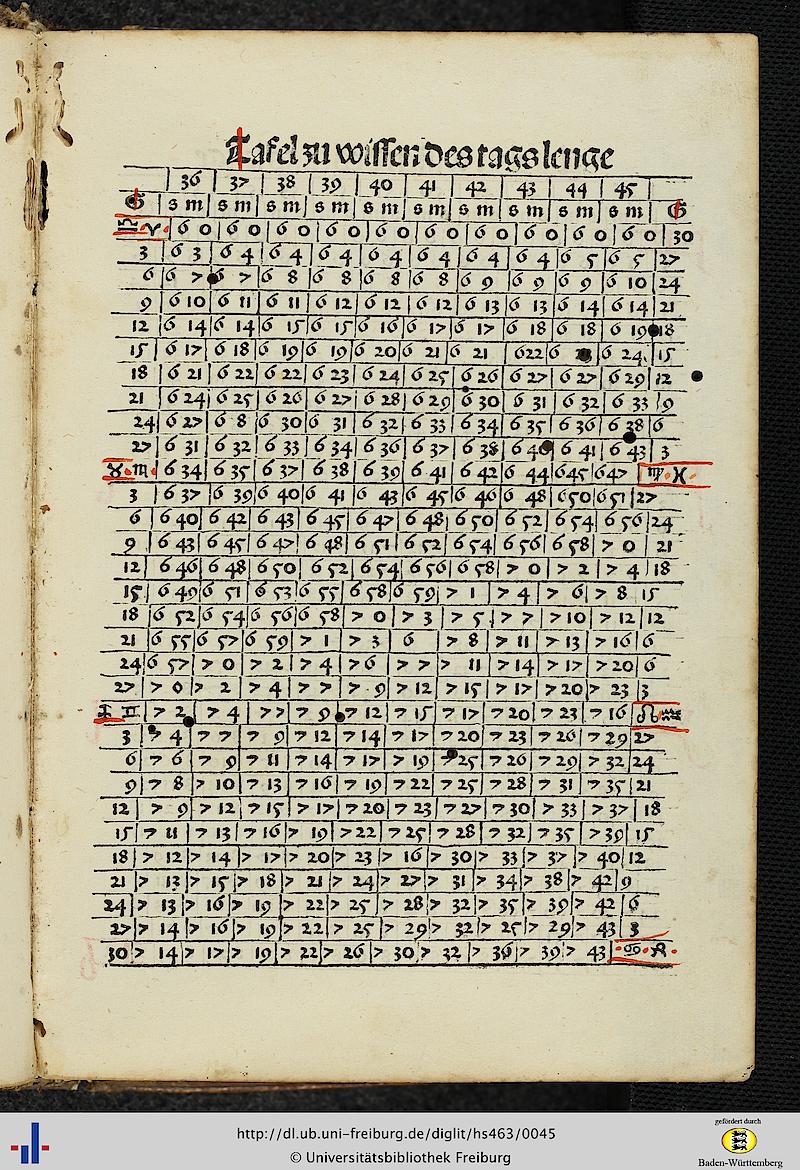 Tafel zu wissen des tags lenge
36 37 38 39 40 41 42 43 44 45
G s m s m s m s m s m s m s m s m s m s m G
♎ ♈ 6 0 6 0 6 0 6 0 6 0 6 0 6 0 6 0 6 0 6 0 30
3 6 3 6 4 6 4 6 4 6 4 6 4 6 4 6 4 6 5 6 5 27
6 6 7 6 7 6 8 6 8 6 8 6 8 6 9 6 9 6 9 6 10 24
9 6 10 6 11 6 11 6 12 6 12 6 12 6 13 6 13 6 14 6 14 21
12 6 14 6 14 6 15 6 15 6 16 6 17 6 17 6 18 6 18 6 19 18
15 6 17 6 18 6 19 6 19 6 20 6 21 6 21 6 22 6 6 24 15
18 6 21 6 22 6 22 6 23 6 24 6 25 6 26 6 27 6 27 6 29 12
21 6 24 6 25 6 26 6 27 6 28 6 29 6 30 6 31 6 32 6 33 9
24 6 27 6 8 6 30 6 31 6 32 6 33 6 34 6 35 6 36 6 38 6
27 6 31 6 32 6 33 6 34 6 36 6 37 6 38 6 40 6 41 6 43 3
♉ ♏ 6 34 6 35 6 37 6 38 6 39 6 41 6 42 6 44 6 45 6 47 ♍ ♓
3 6 37 6 39 6 40 6 41 6 43 6 45 6 46 6 48 6 50 6 51 27
6 6 40 6 42 6 43 6 45 6 47 6 48 6 50 6 52 6 54 6 56 24
9 6 43 6 45 6 47 6 48 6 51 6 52 6 54 6 56 6 58 7 0 21
12 6 46 6 48 6 50 6 52 6 54 6 56 6 58 7 0 7 2 7 4 18
15 6 49 6 51 6 53 6 55 6 58 6 59 7 1 7 4 7 6 7 8 15
18 6 52 6 54 6 56 6 58 7 0 7 3 7 5 7 7 7 10 7 12 12
21 6 55 6 57 6 59 7 1 7 3 6 7 8 7 11 7 13 7 16 6
24 6 57 7 0 7 2 7 4 7 6 7 7 7 11 7 14 7 17 7 20 6
27 7 0 7 2 7 4 7 7 7 9 7 12 7 15 7 17 7 20 7 23 3
♐ ♊ 7 2 7 4 7 7 7 9 7 12 7 15 7 17 7 20 7 23 7 16 ♌ ♒
3 7 4 7 7 7 9 7 12 7 14 7 17 7 20 7 23 7 26 7 29 27
6 7 6 7 9 7 11 7 14 7 17 7 19 7 25 7 26 7 29 7 32 24
9 7 8 7 10 7 13 7 16 7 19 7 22 7 25 7 28 7 31 7 35 21
12 7 9 7 12 7 15 7 17 7 20 7 23 7 27 7 30 7 33 7 37 18
15 7 11 7 13 7 16 7 19 7 22 7 25 7 28 7 32 7 35 7 39 15
18 7 12 7 14 7 17 7 20 7 23 7 16 7 30 7 33 7 37 7 40 12
21 7 13 7 15 7 18 7 21 7 24 7 27 7 31 7 34 7 38 7 42 9
24 7 13 7 16 7 19 7 22 7 25 7 28 7 32 7 35 7 39 7 42 6
27 7 14 7 16 7 19 7 22 7 25 7 29 7 32 7 25 7 29 7 43 3
30 7 14 7 17 7 19 7 22 7 26 7 30 7 32 7 36 7 39 7 43 ♋ ♑
http://dl.ub.uni-freiburg.de/diglit/hs463/0045
© Universitätsbibliothek Freiburg
gefördert durch
Baden-Württemberg